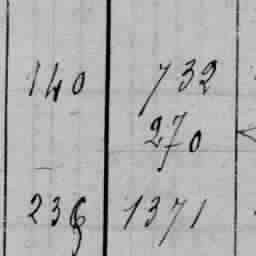 140 732
270
236 1371